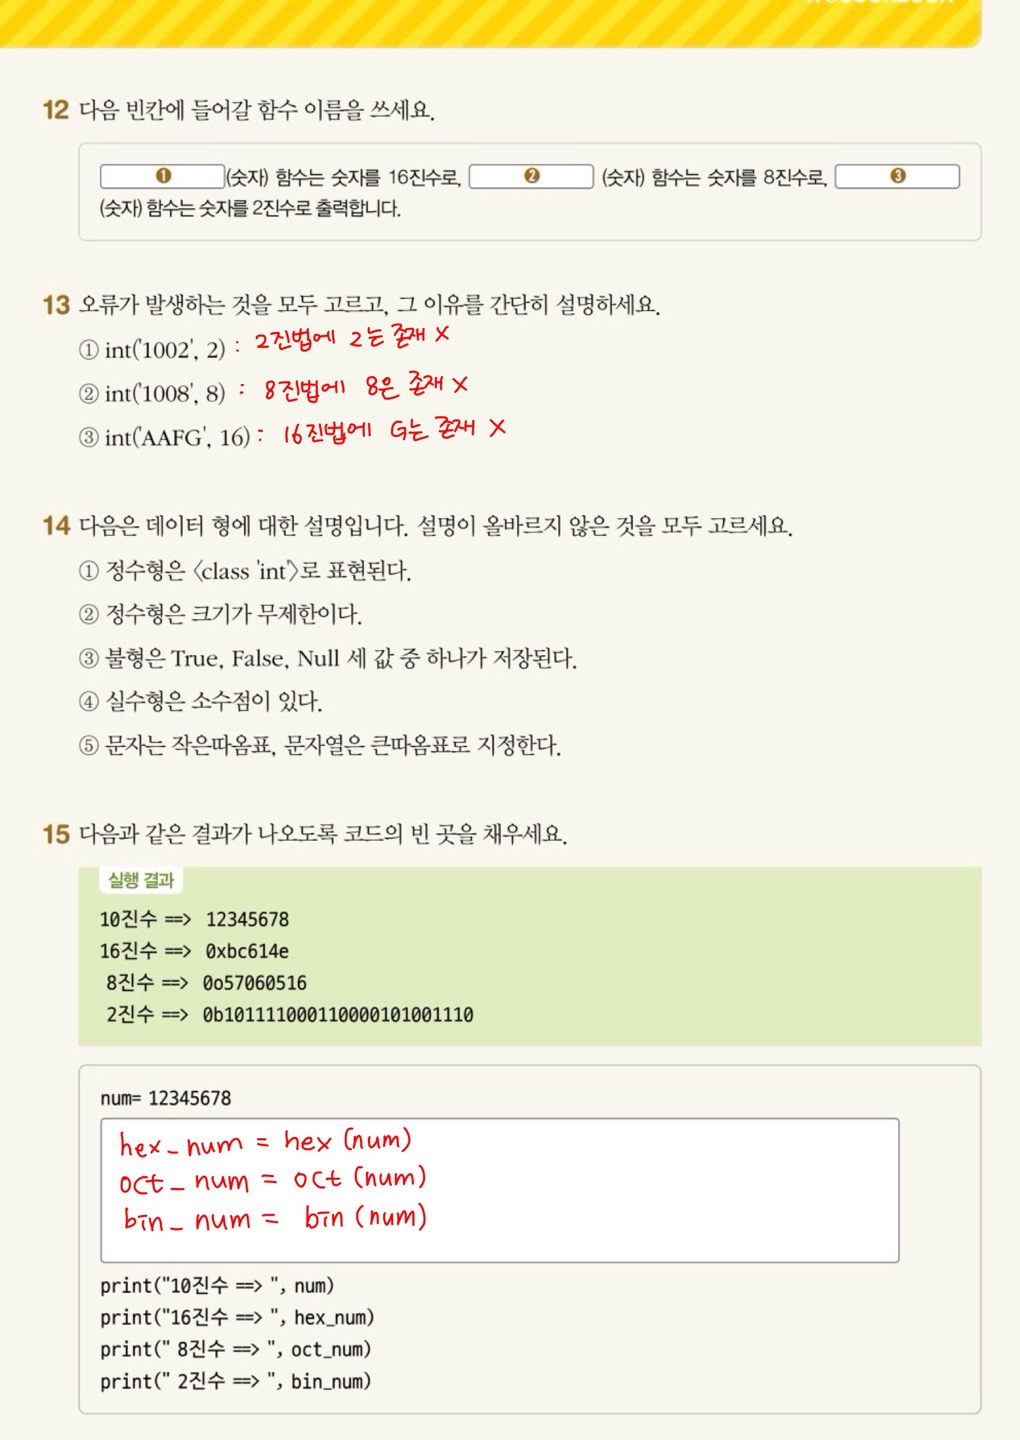 12 다음 빈칸에 들어갈 함수 이름을 쓰세요.
❶ (숫자) 함수는 숫자를 16진수로, ❷ (숫자) 함수는 숫자를 8진수로, ❸
(숫자) 함수는 숫자를 2진수로 출력합니다.
13 오류가 발생하는 것을 모두 고르고, 그 이유를 간단히 설명하세요.
① int('1002', 2) : 2진법에 2는 존재 X
② int('1008', 8) : 8진법에 8은 존재 X
③ int('AAFG', 16) : 16진법에 G는 존재 X
14 다음은 데이터 형에 대한 설명입니다. 설명이 올바르지 않은 것을 모두 고르세요.
① 정수형은 〈class 'int'〉로 표현된다.
② 정수형은 크기가 무제한이다.
③ 불형은 True, False, Null 세 값 중 하나가 저장된다.
④ 실수형은 소수점이 있다.
⑤ 문자는 작은따옴표, 문자열은 큰따옴표로 지정한다.
15 다음과 같은 결과가 나오도록 코드의 빈 곳을 채우세요.
실행 결과
10진수 ==> 12345678
16진수 ==> 0xbc614e
8진수 ==> 0o57060516
2진수 ==> 0b101111000110000101001110
num= 12345678
hex_num = hex (num)
oct_num = oct (num)
bin_num = bin (num)
print("10진수 ==> ", num)
print("16진수 ==> ", hex_num)
print(" 8진수 ==> ", oct_num)
print(" 2진수 ==> ", bin_num)